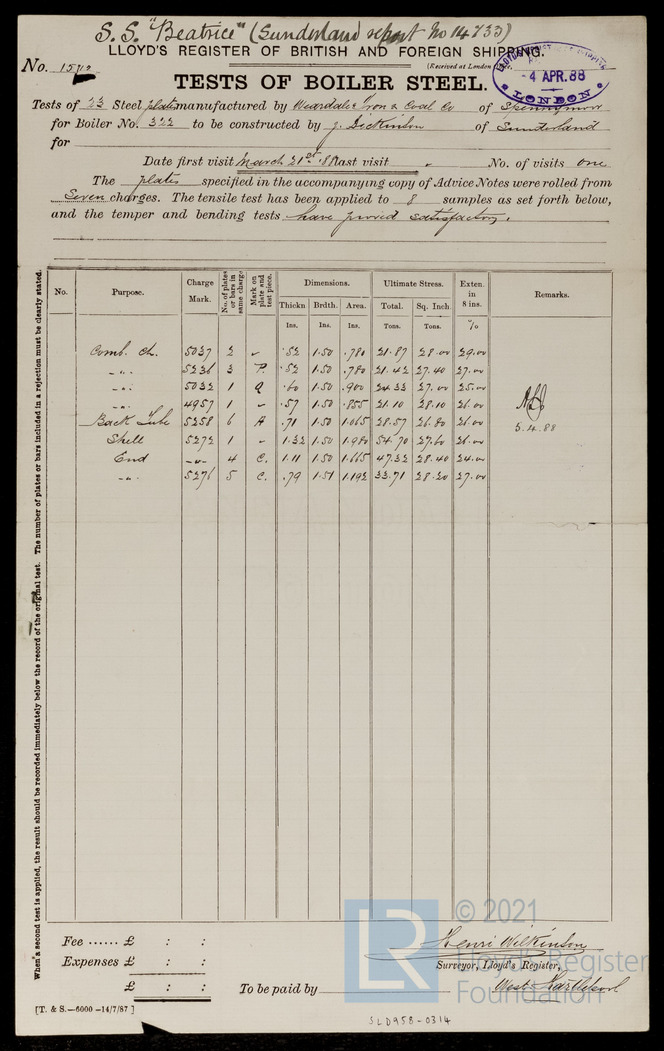 S. S. "Beatrice" (Sunderland report No 14733)
LLOYD'S REGISTER OF BRITISH AND FOREIGN SHIPPING.
No.
(Received at London
4 APR.88
LONDON
TESTS OF BOILER STEEL.
Tests of 23 Steel plates manufactured by Weardale Iron & Coal Co of Spennymoor
for Boiler No. 322 to be constructed by J. Dickinson of Sunderland
for
Date first visit March 21st 88 last visit " No. of visits one
The plates specified in the accompanying copy of Advice Notes were rolled from
Seven charges. The tensile test has been applied to 8 samples as set forth below,
and the temper and bending tests have proved satisfactory.
When a second test is applied, the result should be recorded immediately below the record of the original test. The number of plates or bars included in a rejection must be clearly stated.
No. Purpose. Charge Mark. No. of plates or bars in same charge Mark on plate and test piece. Dimensions. Ultimate Stress. Exten. in 8 ins. Remarks.
Thickn Brdth. Area. Total. Sq. Inch
Ins. Ins. Ins. Tons. Tons. %
Comb. Ch. 5037 2 " .52 1.50 .780 21.87 28.00 29.00
-"- 5236 3 P. .52 1.50 .780 21.42 27.40 27.00
-"- 5032 1 Q .60 1.50 .900 24.33 27.00 25.00
-"- 4957 1 " .57 1.50 .855 21.10 28.10 26.00
Back Tube 5258 6 A .71 1.50 1.065 28.57 26.80 26.00
3.4.88
Shell 5272 1 " 1.32 1.50 1.980 54.70 27.60 26.00
End -"- 4 C. 1.11 1.50 1.665 47.32 28.40 24.00
-"- 5276 5 C. .79 1.51 1.192 33.71 28.20 27.00
© 2021
Lloyd's Register
Foundation
LR
Fee ...... £ : :
Expenses £ : :
£ : :
To be paid by
Henri Wilkinson
Surveyor, Lloyd's Register,
West Hartlepool
[T. & S.—6000 —14/7/87]
SLD958-0314